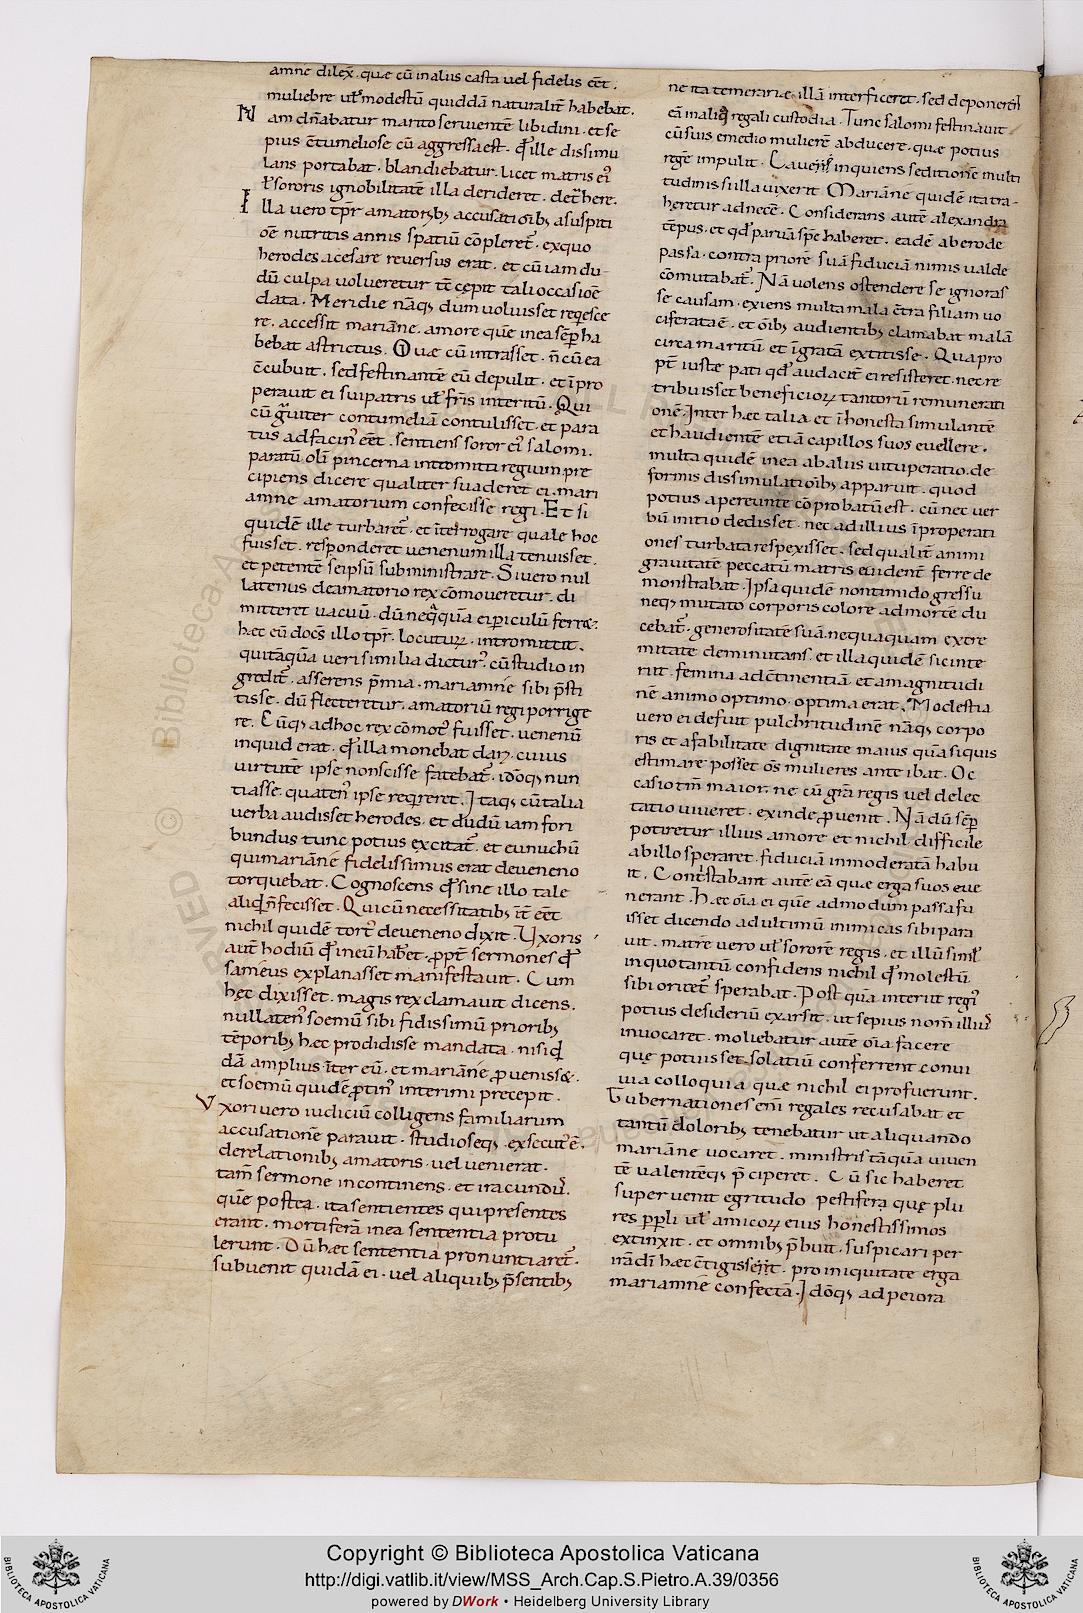 amne dilex̄. quae cū in aliis casta uel fidelis eēt.
muliebre ut modestū quiddā naturalit̄ habebat.
Nam dn̄abatur marito seruientē libidini. et se
pius c̄tumeliose cū aggressa est. qd̄ ille dissimu
lans portabat. blandiebatur. licet matris ei᾽
ł sororis ignobilitatē illa derideret. det̄here.
Illa uero tp̄r amatorib; accusatioīb; asuspiti
oē nutritis annis spatiū cōpleret̄. exquo
herodes acesare reuersus erat. et cū iam du-
dū culpa uolueretur tc̄ cępit tali occasioē
data. Meridie nāq; dum uoluisset reqescę
re. accessit mariāne. amore quē inea sēp ha
bebat astrictus. Quae cū intrasset. n̄ cū ea
c̄cubuit. sed festinantē eū depulit. et īpro
perauit ei sui patris ut fr̄is interitū. Qui
cū grauiter contumeliā contulisset. et para
tus ad facin᾽ eēt. sentiens soror ei᾽ salomi.
paratū olī pincerna intromitti regium pre
cipiens dicere qualiter suaderet ei. mari
amne amatorium confecisse regi. Et si
quidē ille turbaret̄. et īterrogare quale hoc
fuisset. responderet uenenum illa tenuisset.
et petentē seipsū subministrare. Si uero nul
latenus deamatorio rex cōmoueretur. di
mitteret uacuū. dū neq̄quā ei piculū ferret.
haec eū docs̄ illo tp̄r. locuturꝫ. intromittit.
qui tāquā uerisimilia dictur᾽. cū studio in
gredit̄. asserens p̄mia. mariamne sibi p̄sti
tisse. dū flecteretur. amatoriū regi porrige
re. Cūq; adhoc rex cōmot᾽ fuisset. uenenū
inquid erat. qd̄ illa monebat darꝫ. cuius
uirtutē ipse nonscisse fatebat̄. idōq; nun
tiasse. quaten᾽ ipse reqreret. Itaq; cū talia
uerba audisset herodes. et dudū iam fori
bundus tunc potius excitat̄. et eunuchū
qui mariāne fidelissimus erat deueneno
torquebat. Cognoscens qd̄ sine illo tale
aliqd̄ n̄ fecisset. Qui cū necessitatib; it̄ eēt
nichil quidē tort᾽ deueneno dixit. Uxoris
aut̄ hodiū qd̄ ineū habet. ppt̄ sermones qd̄
samęus explanasset manifestauit. Cum
hęc dixisset. magis rex clamauit dicens.
nullaten᾽ soemū sibi fidissimū priorib;
tēporib; haec prodidisse mandata. nisi qd̄
dā amplius īter eū. et mariāne puenisset.
et soemū quidē ptin᾽ interimi precepit.
Uxori uero iudiciū colligens familiarum
accusationē parauit. studioseq; exsecut᾽ ē.
derelationib; amatoris. uel uenierat.
tam̄ sermone incontinens. et iracund᾽.
quē postea. ita sentientes qui presentes
erant. mortiferā inea sententia protu
lerunt. Dū haec sententia pronuntiaret̄.
subuenit quidā ei. uel aliquib; p̄sentib;
ne ita temerariae illā interficeret. sed deponerent
eā in aliq̄ regali custodia. Tunc salomi festinauit
cū suis emedio mulierē abducere. quae potius
regē impulit. Cauens inquiens seditionē multi
tudinis si illa uixerit. Mariānę quidē ita tra-
heretur ad necē. Considerans autē alexandra
tēpus. et qd̄ paruā spē haberet. eadē aberode
passa. contra priorē suā fiduciā nimis ualde
cōmutabat̄. Nā uolens ostendere se ignoras
se causam. exiens multa mala c̄tra filiam uo
ciferata ē. et oīb; audientib; clamabat malā
circa maritū et īgratā extitisse. Quapro
pt̄ iustae pati qd̄ audacit̄ ei resisteret. nec re
tribuisset beneficiorꝫ tantorū remunerati
onē. Inter haec talia. et īhonesta simulantē
et haudientē etiā capillos suos euellere.
multa quidē inea abaliis uituperatio. de
formis dissimulatioīb; apparuit. quod
potius a pereunte cōprobatū est. cū nec ver
bū initio dedisset. nec ad illius īproperati
ones turbata respexisset. sed qualit̄ animi
grauitatē peccatū matris euident̄ ferre de
monstrabat. Ipsa quidē non timido gressu
neq; mutato corporis colore ad mortē du
cebat̄. generositatē suā. nequaquam extre
mitate deminutans. et illa quidē sic inte
riit. femina adc̄tinentiā. et amagnitudi
nē animo optimo. optima erat. Modestia
uero ei defuit pulchritudinē nāq; corpo
ris et afabilitate dignitate maius quā si quis
estimare posset oēs mulieres ante ibat. Oc
casio tn̄ maior. ne cū gr̄a regis uel delec
tatio uiueret. exinde puenit. Nā dū sēp
potiretur illius amore et nichil difficile
ab illo speraret. fiduciā inmoderatā habu
it. Contristabant autē eā quae erga suos eue
nerant. Haec oīa ei quę admodum passa fu
isset dicendo ad ultimū inimicas sibi para
uit. matrē uero ut sororē regis. et illū simł
inquo tantū confidens nichil qd̄ molestū.
sibi oriret̄ sperabat. Post quā interiit regis
potius desideriū exarsit. ut sepius nom̄ illius
inuocaret. moliebatur autē oīa facere
quę potuisset solatiū conferrent conui
uia colloquia quae nichil ei profuerunt.
Gubernationes enī regales recusabat et
tantū dolorib; tenebatur ut aliquando
mariāne uocaret. ministris tāquā uiuen
tē ualentēq; p̄ciperet. Cū sic haberet
superuenit egritudo pestifera quę plu
res ppli ut amicorꝫ eius honestissimos
extinxit. et omnib; p̄buit. suspicari per
irādī haec c̄tigissent. pro iniquitate erga
mariamnē confectā. Idōq; ad peiora
Copyright © Biblioteca Apostolica Vaticana
http://digi.vatlib.it/view/MSS_Arch.Cap.S.Pietro.A.39/0356
powered by DWork • Heidelberg University Library